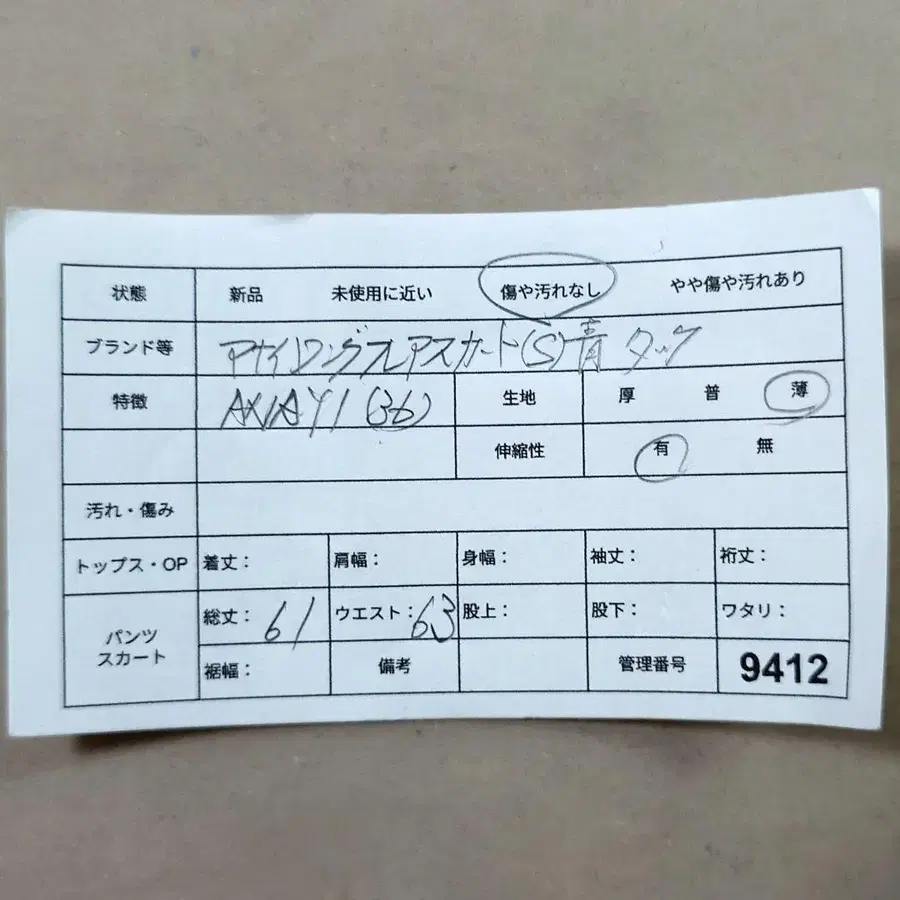 状態 新品 未使用に近い 傷や汚れなし やや傷や汚れあり
ブランド等 アナイ ロングフレアスカート(S)青 タック
特徴 (36) 生地 厚 普 薄
伸縮性 有 無
汚れ・傷み
トップス・OP 着丈: 肩幅: 身幅: 袖丈: 裄丈:
パンツ スカート 総丈: 61 ウエスト: 63 股上: 股下: ワタリ:
裾幅: 備考 管理番号 9412